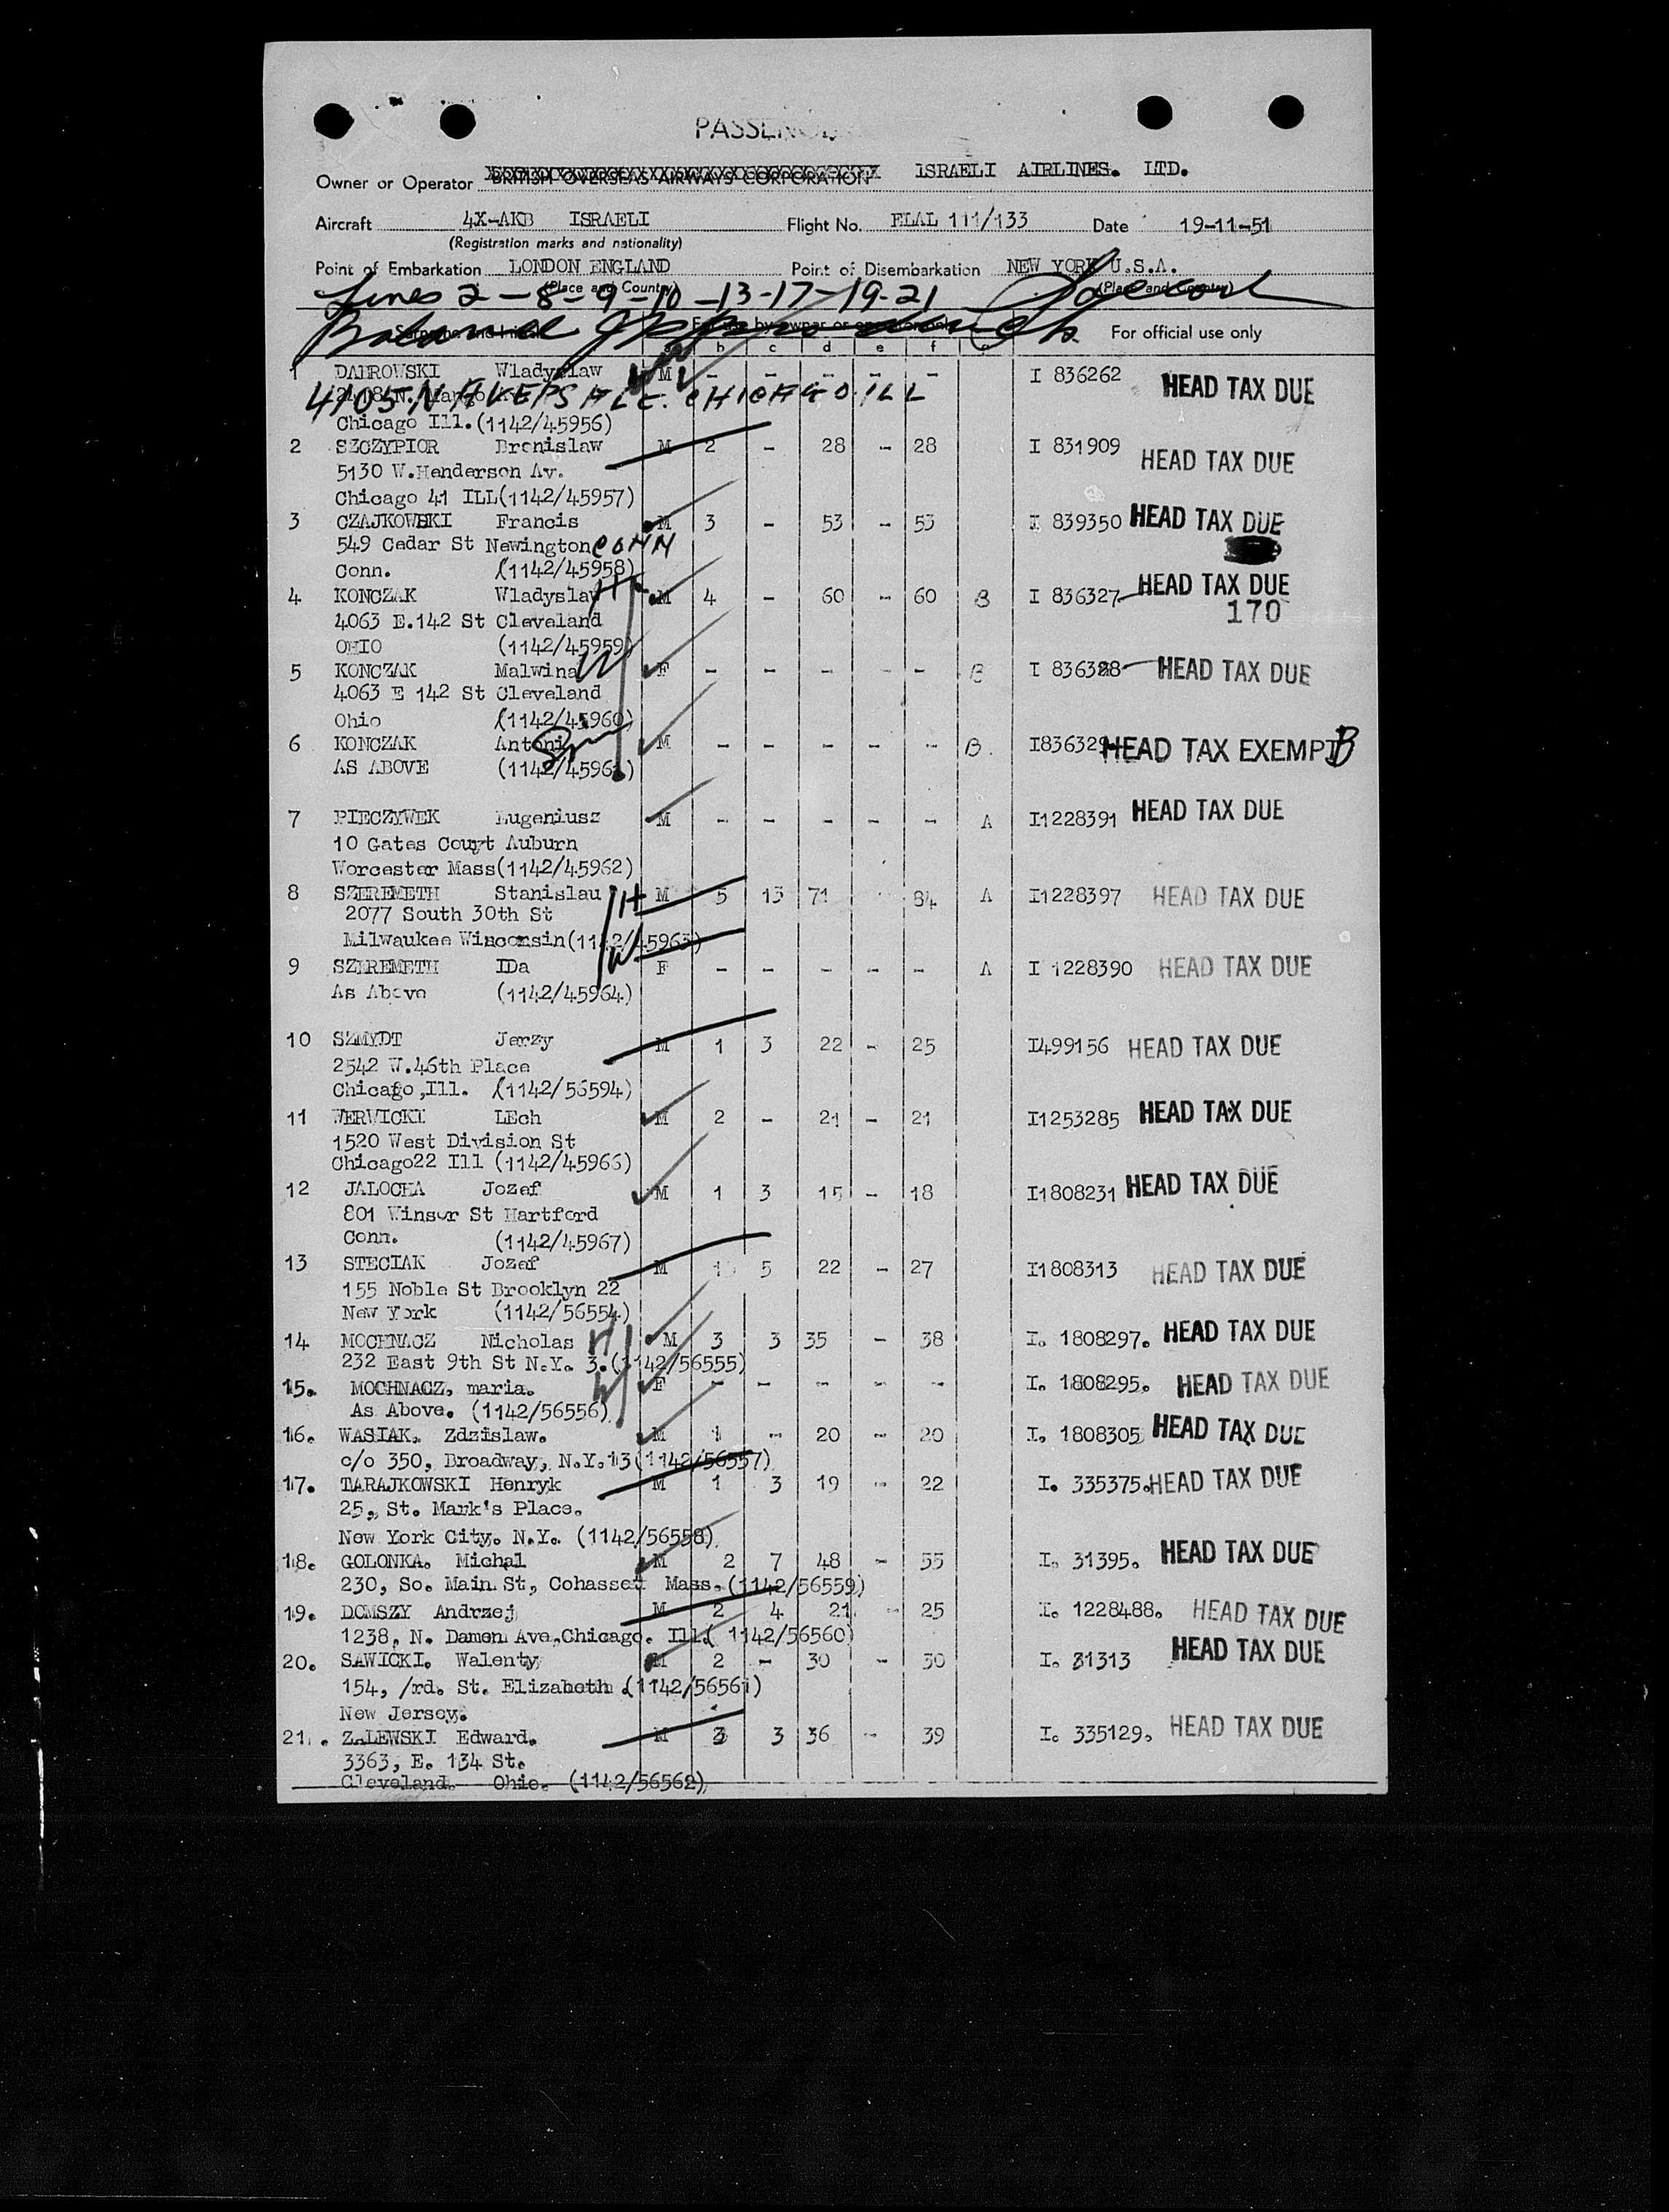 Owner or Operator BRITISH OVERSEAS AIRWAYS CORPORATION ISRAELI AIRLINES. LTD.
Aircraft 4X-AKB ISRAELI Flight No. ELAL 111/133 Date 19-11-51
(Registration marks and nationality)
Point of Embarkation LONDON ENGLAND Point of Disembarkation NEW YORK U.S.A.
(Place and Country) (Place and Country)
Lines 2 - 8 - 9 - 10 - 13 - 17 - 19 - 21
For official use only
b c d e f
1 DABROWSKI Wladyslaw M - - - - - I 836262 HEAD TAX DUE
4105 N AVERS AVE. CHICAGO ILL
Chicago Ill. (1142/45956)
2 SZCZYPIOR Bronislaw M 2 - 28 - 28 I 831909 HEAD TAX DUE
5130 W.Henderson Av.
Chicago 41 ILL(1142/45957)
3 CZAJKOWSKI Francis M 3 - 53 - 53 I 839350 HEAD TAX DUE
549 Cedar St Newington CONN
Conn. (1142/45958)
4 KONCZAK Wladyslaw H M 4 - 60 - 60 B I 836327 HEAD TAX DUE
4063 E.142 St Cleveland 170
OHIO (1142/45959)
5 KONCZAK Malwina W F - - - - - B I 836328 HEAD TAX DUE
4063 E 142 St Cleveland
Ohio (1142/45960)
6 KONCZAK Antoni M - - - - - B. I836329 HEAD TAX EXEMPT B
AS ABOVE (1142/45961)
7 PIECZYWEK Eugeniusz M - - - - - A I1228391 HEAD TAX DUE
10 Gates Couyt Auburn
Worcester Mass(1142/45962)
8 SZEREMETH Stanislau H M 5 13 71 84 A I1228397 HEAD TAX DUE
2077 South 30th St
Milwaukee Wisconsin(1142/45963)
9 SZEREMETH IDa W F - - - - - A I 1228390 HEAD TAX DUE
As Above (1142/45964)
10 SZMYDT Jerzy M 1 3 22 - 25 I499156 HEAD TAX DUE
2542 W.46th Place
Chicago,Ill. (1142/56594)
11 WERWICKI LEch M 2 - 21 - 21 I1253285 HEAD TAX DUE
1520 West Division St
Chicago22 Ill (1142/45966)
12 JALOCHA Jozef M 1 3 15 - 18 I1808231 HEAD TAX DUE
801 Winsor St Hartford
Conn. (1142/45967)
13 STECIAK Jozef M 1 5 22 - 27 I1808313 HEAD TAX DUE
155 Noble St Brooklyn 22
New York (1142/56554)
14 MOCHNACZ Nicholas H M 3 3 35 - 38 I. 1808297. HEAD TAX DUE
232 East 9th St N.Y. 3.(1142/56555)
15. MOCHNACZ, maria. W F - - - - - I. 1808295. HEAD TAX DUE
As Above. (1142/56556)
16. WASIAK. Zdzislaw. M 1 - 20 - 20 I. 1808305 HEAD TAX DUE
c/o 350, Broadway, N.Y.13(1142/56557)
17. TARAJKOWSKI Henryk M 1 3 19 - 22 I. 335375. HEAD TAX DUE
25, St. Mark's Place.
New York City. N.Y. (1142/56558)
18. GOLONKA. Michal M 2 7 48 - 55 I. 31395. HEAD TAX DUE
230, So. Main St, Cohasset Mass.(1142/56559)
19. DOMSZY Andrzej M 2 4 21 - 25 I. 1228488. HEAD TAX DUE
1238, N. Damen Ave,Chicago. Ill.( 1142/56560)
20. SAWICKI. Walenty M 2 - 30 - 30 I. 31313 HEAD TAX DUE
154, /rd. St. Elizabeth.(1142/56561)
New Jersey.
21. ZALEWSKI Edward. M 3 3 36 - 39 I. 335129. HEAD TAX DUE
3363, E. 134 St.
Cleveland. Ohio. (1142/56562)